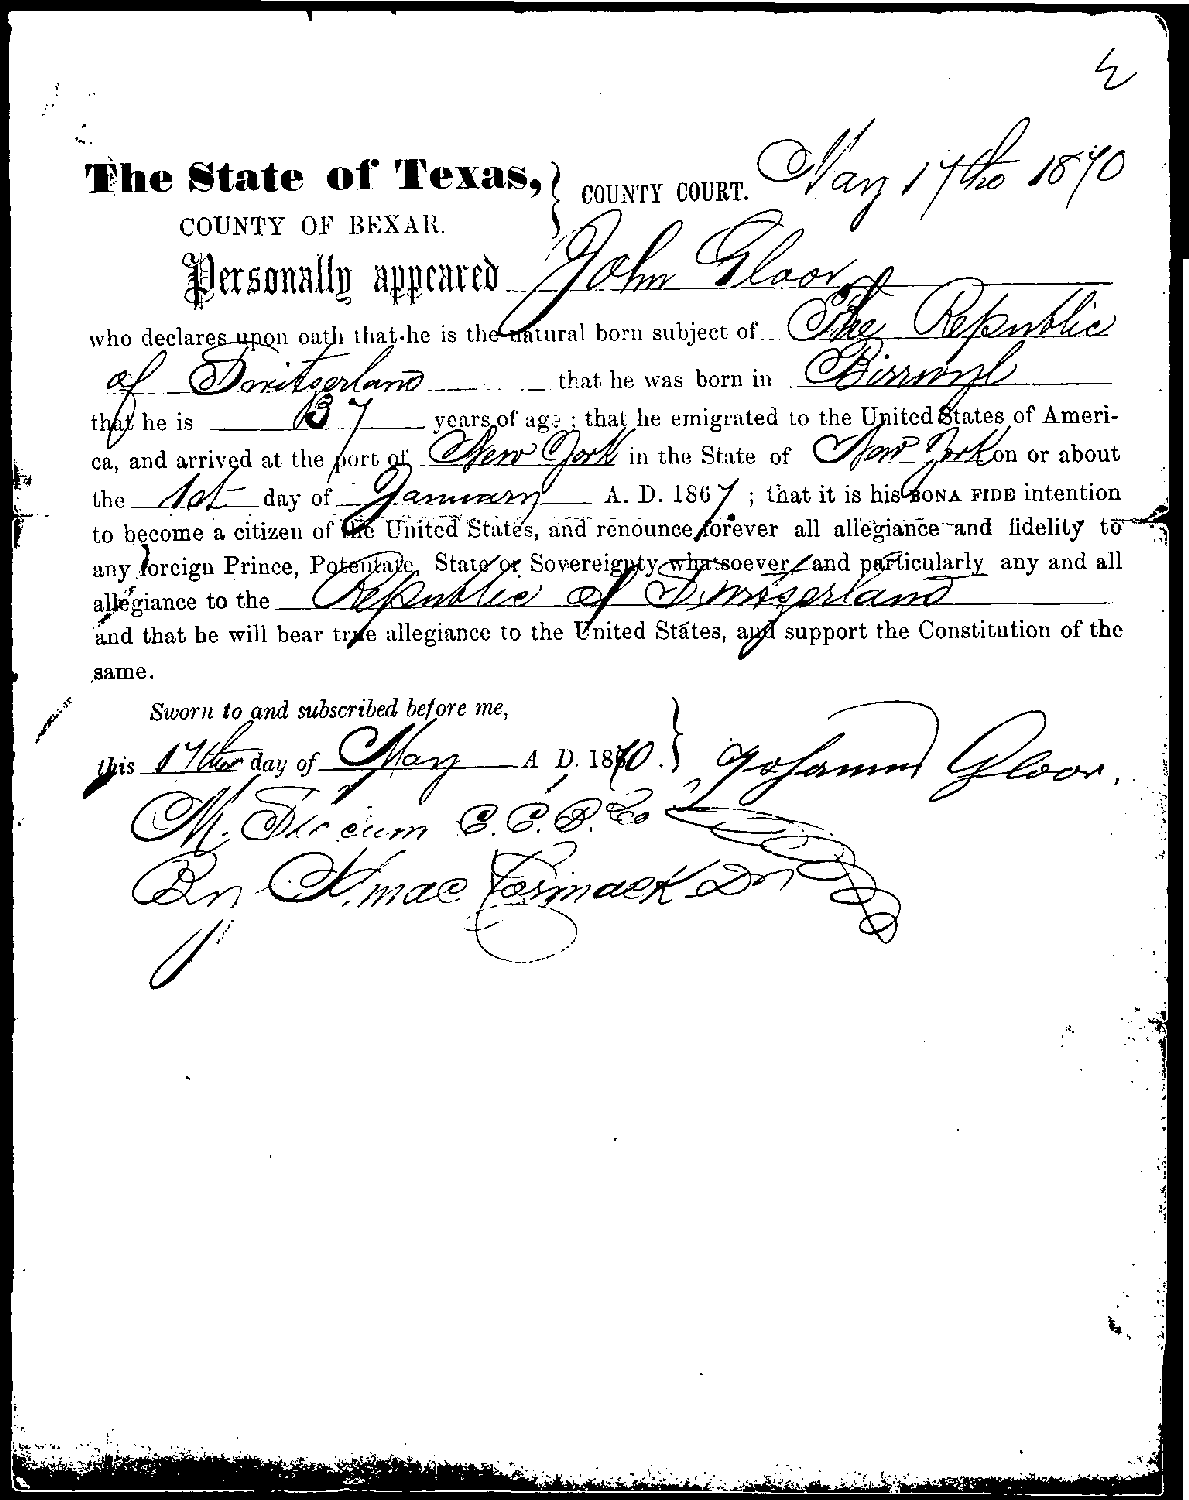 The State of Texas, } COUNTY COURT. May 17th 1870
COUNTY OF BEXAR.
Personally appeared John Gloor
who declares upon oath that he is the natural born subject of The Republic
of Switserland that he was born in Birrwyl
that he is 37 years of age; that he emigrated to the United States of Ameri-
ca, and arrived at the port of New York in the State of New York on or about
the 1st day of January A. D. 1867; that it is his BONA FIDE intention
to become a citizen of the United States, and renounce forever all allegiance and fidelity to
any foreign Prince, Potentate, State or Sovereignty whatsoever, and particularly any and all
allegiance to the Republic of Switserland
and that he will bear true allegiance to the United States, and support the Constitution of the
same.
Sworn to and subscribed before me,
this 17th day of May A D. 1870. } Johannes Gloor.
M. C. C. B. Co
By MacCormack Dy